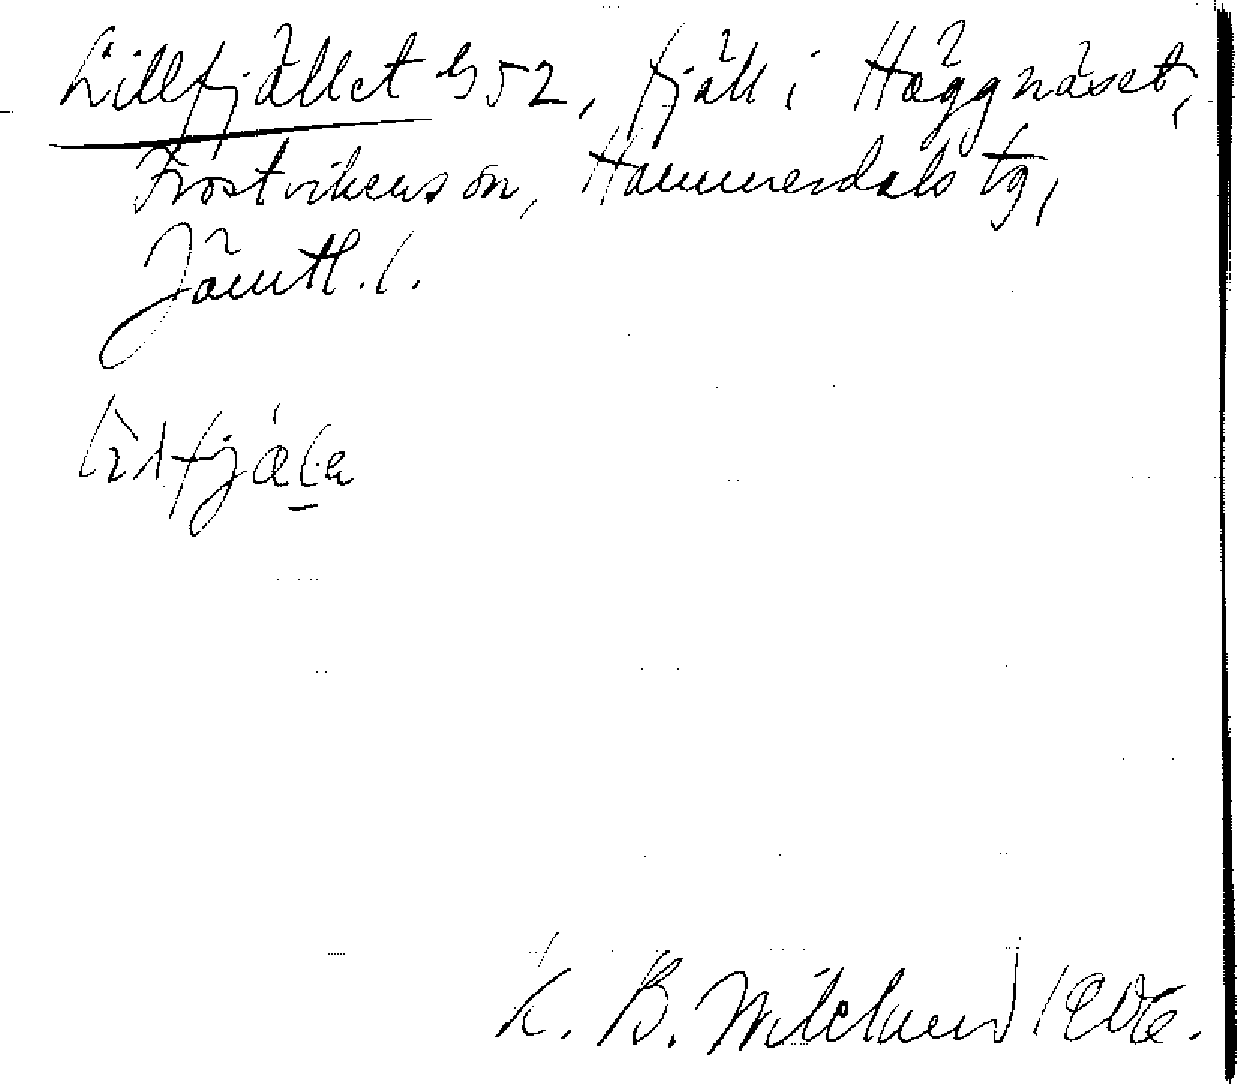 Lillfjället G52, fjäll i Häggnäset,
Frostvikens sn, Hammerdals tg,
Jämtl. l.
K. B. Wiklund 1906.